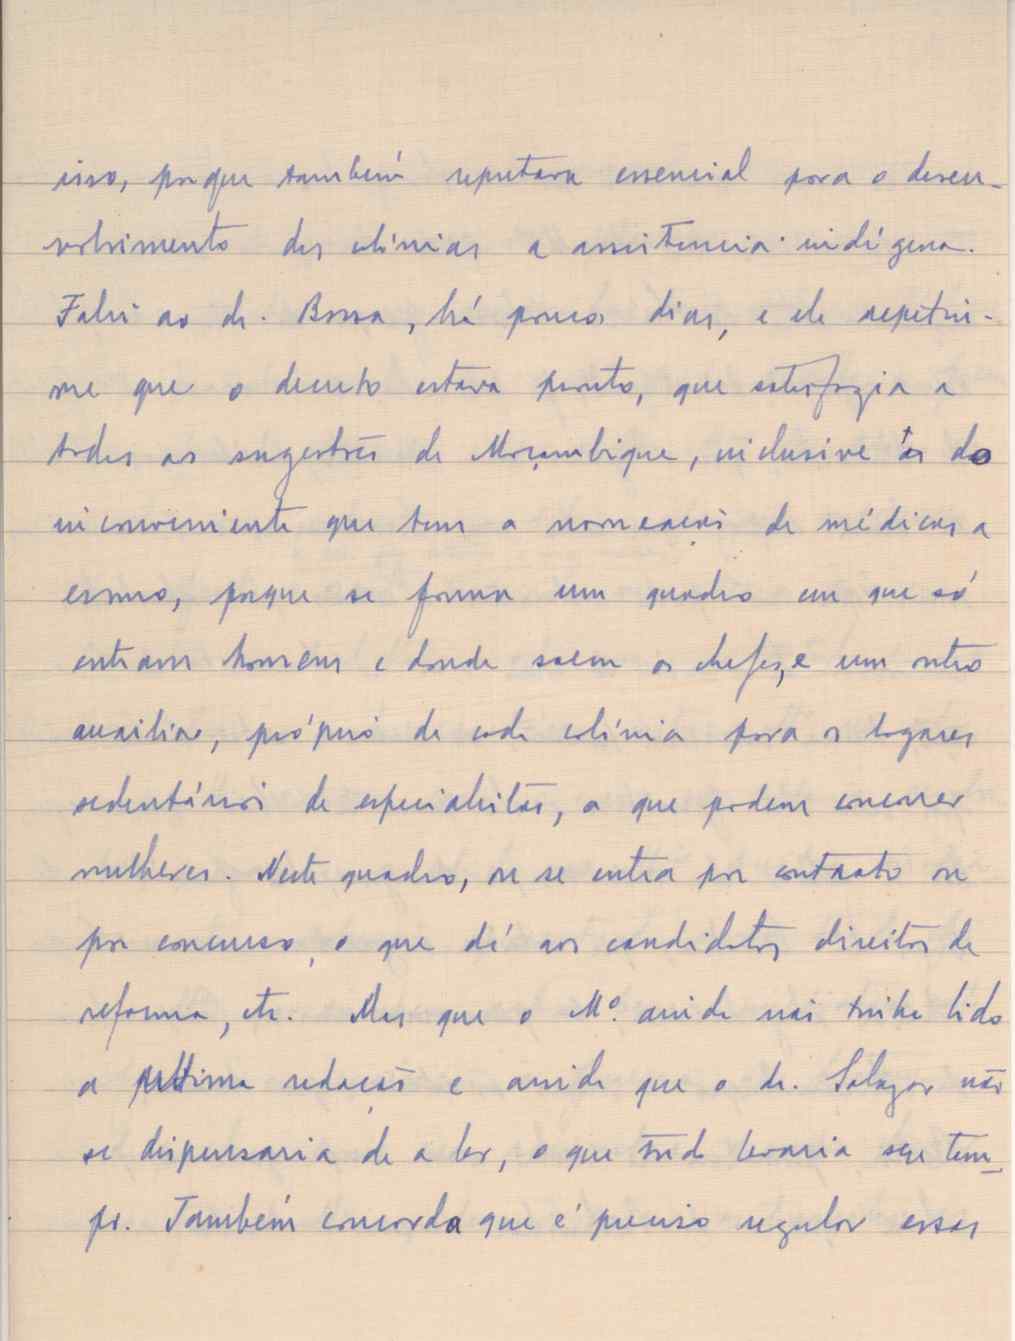 isso, porque também reputava essencial para o desen-
volvimento das colónias a assistencia indígena.
Falei ao dr. Bossa, há poucos dias, e ele repetiu-
me que o decreto estava pronto, que satisfazia a
todas as sugestões de Moçambique, inclusive às do
inconveniente que tem a nomeação de médicos a
esmo, porque se forma um quadro em que só
entram homens e donde saem os chefes, e um outro
auxiliar, próprio de cada colónia para os logares
sedentários de especialistas, a que podem concorrer
mulheres. Neste quadro, ou se entra por contrato ou
por concurso, o que dá aos candidatos direitos de
reforma, etc. Mas que o Mº. ainda não tinha lido
a última redação e ainda que o dr. Salazar não
se dispensaria de a ler, o que tudo levaria seu tem-
po. Também concorda que é preciso regular essas